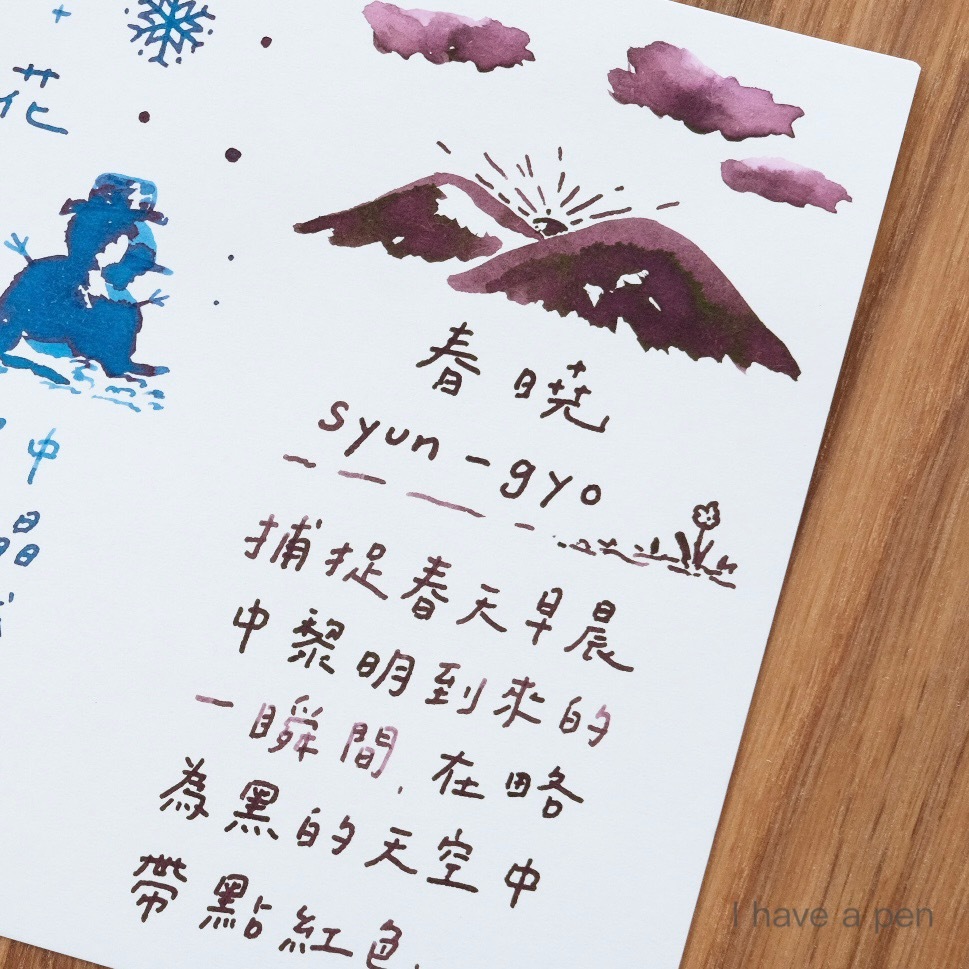 花
中
晶
春曉
syun-gyo
捕捉春天早晨
中黎明到來的
一瞬間,在略
為黑的天空中
帶點紅色.
I have a pen